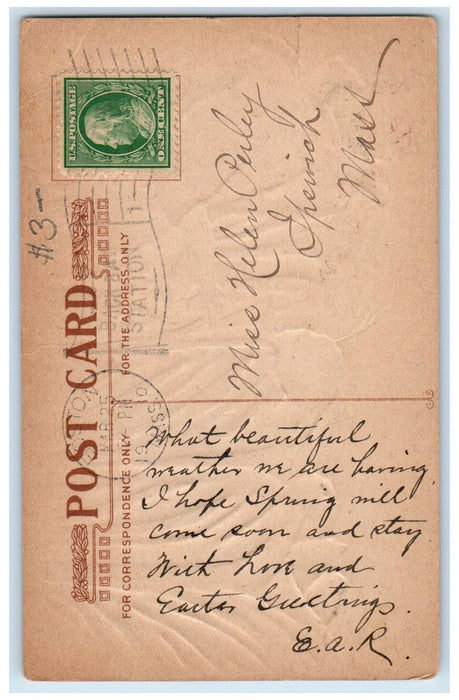 U.S. POSTAGE
ONE CENT
#3-
BACK BAY
STATION
1
BOSTON, MASS.
MAR 25
PM
1910
POST CARD
FOR CORRESPONDENCE ONLY
FOR THE ADDRESS ONLY
Miss Helen Perley
Ipswich
Mass
What beautiful
weather we are having.
I hope Spring will
come soon and stay.
With Love and
Easter Greetings.
E.a.R.